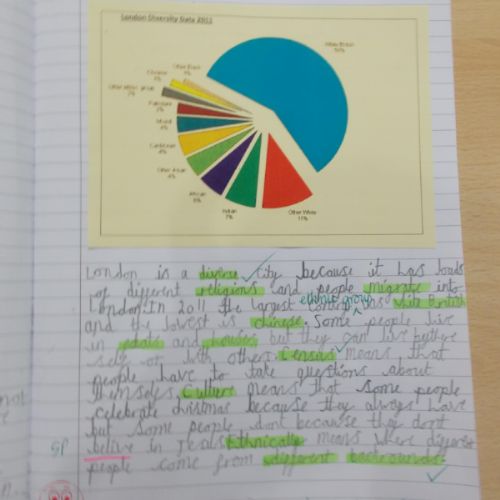 London Diversity Data 2011
White British
Other White
11%
Indian
7%
African
Other Asian
Caribbean
4%
Mixed
Pakistani
Chinese
Other Black
London is a diverse city because it has loads
of different religions and people migrate into
London. In 2011 the largest ethnic group was White British
and the lowest is chinese. Some people live
in and houses but they can live
self or with others. Census means that
people have to take questions about
themselfs. Culture means that some people
celebrate because they always have
but some people dont because they dont
belive in Ethnically means where different
people come from different
sp